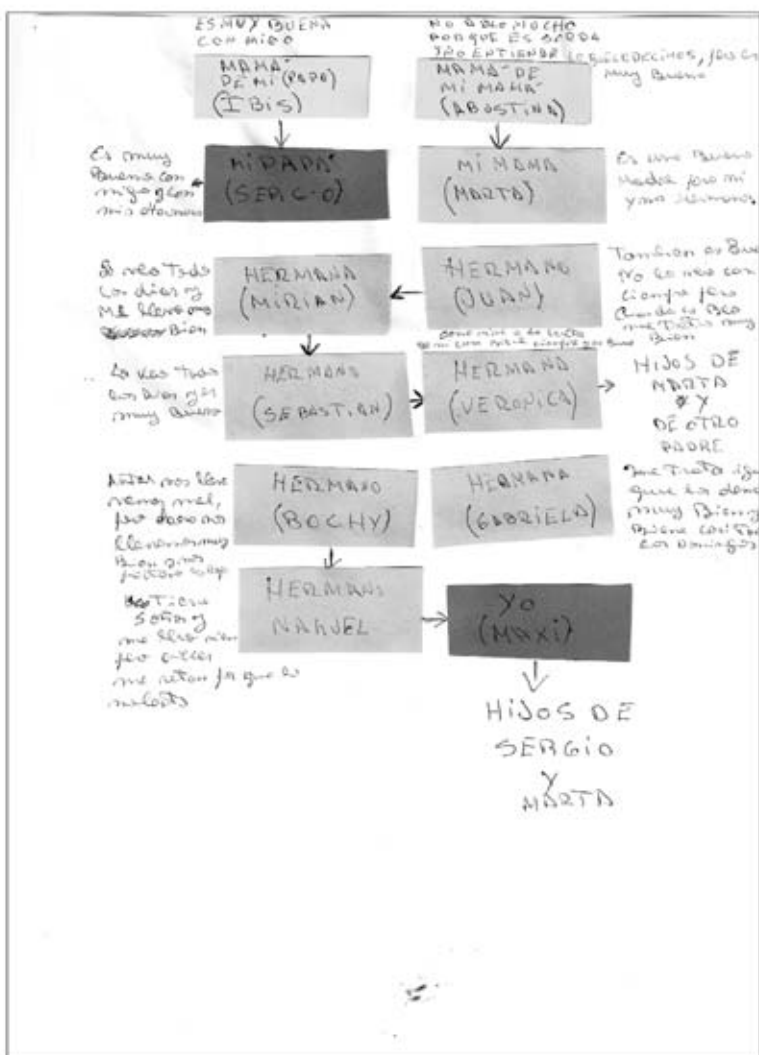 ES MUY BUENA
CON MIGO
MAMÁ
DE MI (PAPA)
(IBIS)
NO ABLO MUCHO
PORQUE ES SORDA
Y NO ENTIENDE LO QUE LE DECIMOS, pero es
muy Buena
MAMÁ DE
MI MAMÁ
(AGUSTINA)
Es muy
Bueno con
migo y con
mis
MI PAPÁ
(SERGIO)
MI MAMA
(MARTA)
Es una Buena
Madre para mi
y mis hermanos
Lo veo Todo
los dias y
ME llevo muy
Bien
HERMANA
(MIRIAN)
HERMANO
(JUAN)
Tambien es Bue
no lo veo con
ciempre pero
Cuando lo Beo
me trata muy
Bien
Lo veo Todo
los dias y es
muy Bueno
HERMANO
(SEBASTIAN)
HERMANA
(VERONICA)
HIJOS DE
MARTA
Y
DE OTRO
PADRE
Antes nos lleva
vamos mal,
pero nos
llevamos muy
Bien
HERMANO
(BOCHY)
HERMANA
(GABRIELA)
me Trata igu
que los demas
muy Bien y
Biene casi To
los Domingos
Tiene
me llevo
pero
me retan por que lo
molesto
HERMANO
NAHUEL
YO
(MAXI)
HIJOS DE
SERGIO
Y
MARTA